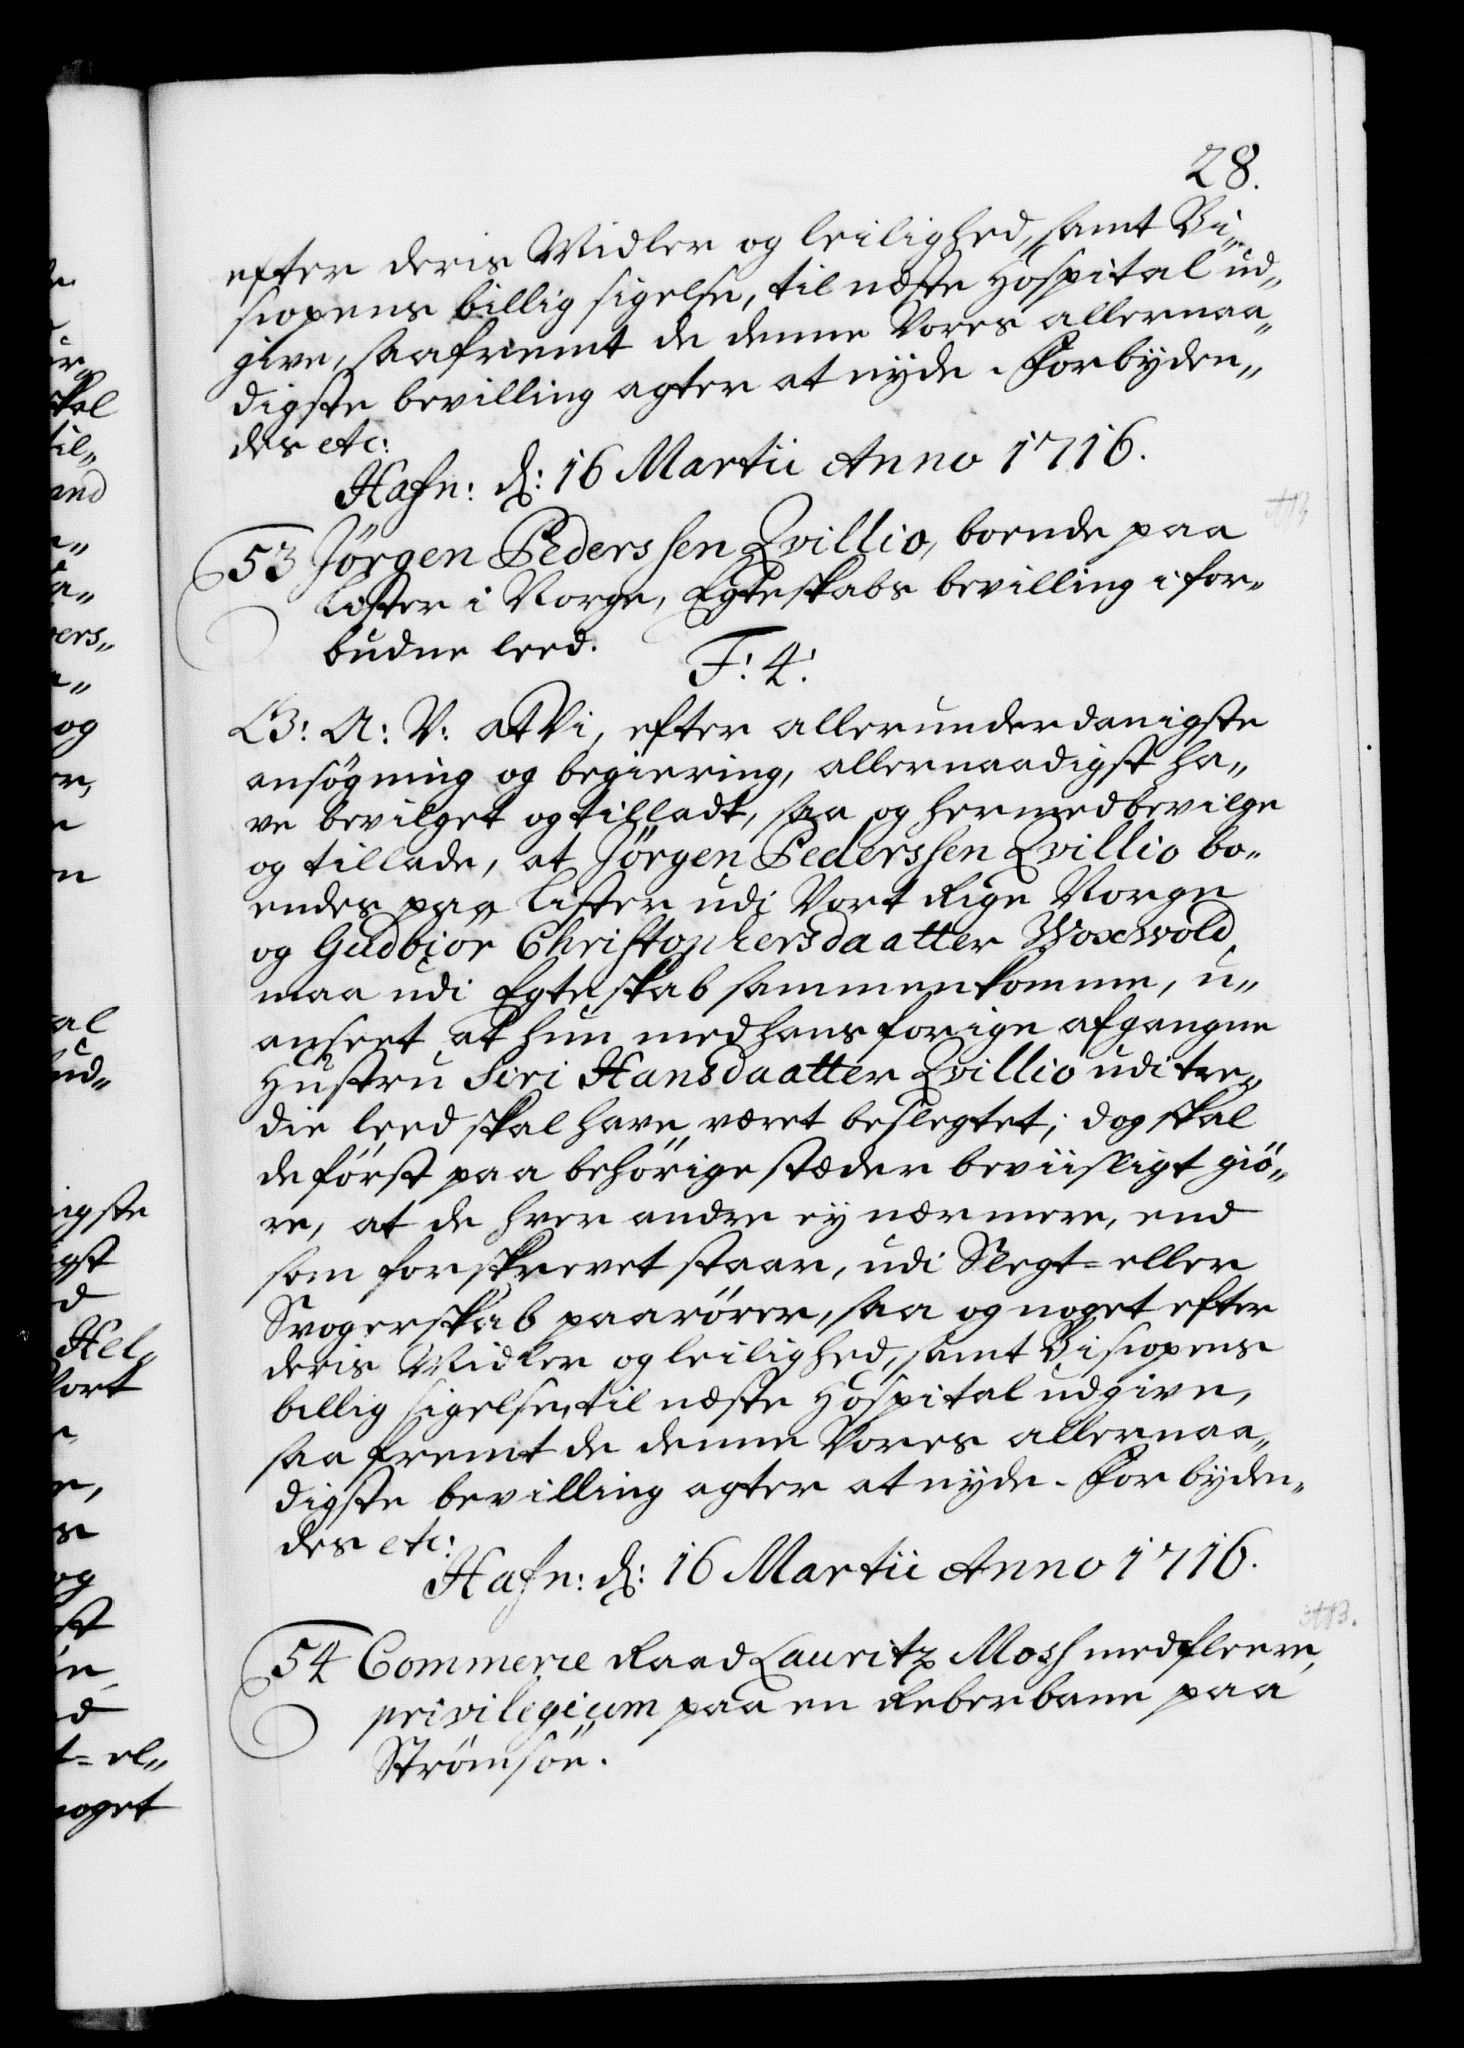 28.
efter deris Midler og leilighed, samt Bi„
scopens billig sigelse, til neste Hospital ud„
give, saafremt de denne Vores allernaa„
digste bevilling agter at nyde. Forbyden„
des etc:
Hafn: d: 16 Martii Anno 1716.
53 Jörgen Pederssen Qvillio, boende paa
Lister i Norge, Egteskabs bevilling i for„
budne leed.
F: 4:
G: A: V: at Vi, efter allerunderdanigste
ansögning og begiering, allernaadigst ha„
ve bevilget og tilladt, saa og hermed bevilge
og tillade, at Jörgen Pederssen Qvillio bo„
endes paa Lister udi Vort Rige Norge
og Gudbiör Christophersdaatter Woxwold,
maa udi Egteskab sammenkomme, u„
anseet at hun med hans forige afgangne
Hustru Siri Hansdaatter Qvillio udi tre„
die leed skal have været beslegtet; dog skal
de först paa behörige stæder beviisligt giö„
re, at de hver andre ey nærmere, end
som forskrevet staar, udi Slegt= eller
Svogerskab paarörer, saa og noget efter
deris Midler og leilighed, samt Biscopens
billig sigelse, til neste Hospital udgive,
saafremt de denne Vores allernaa„
digste bevilling agter at nyde. Forbyden„
des etc:
Hafn: d: 16 Martii Anno 1716.
54 Commerce Raad Lauritz Mosh med fleere,
privilegium paa en Reberbane paa
Strömsöe.